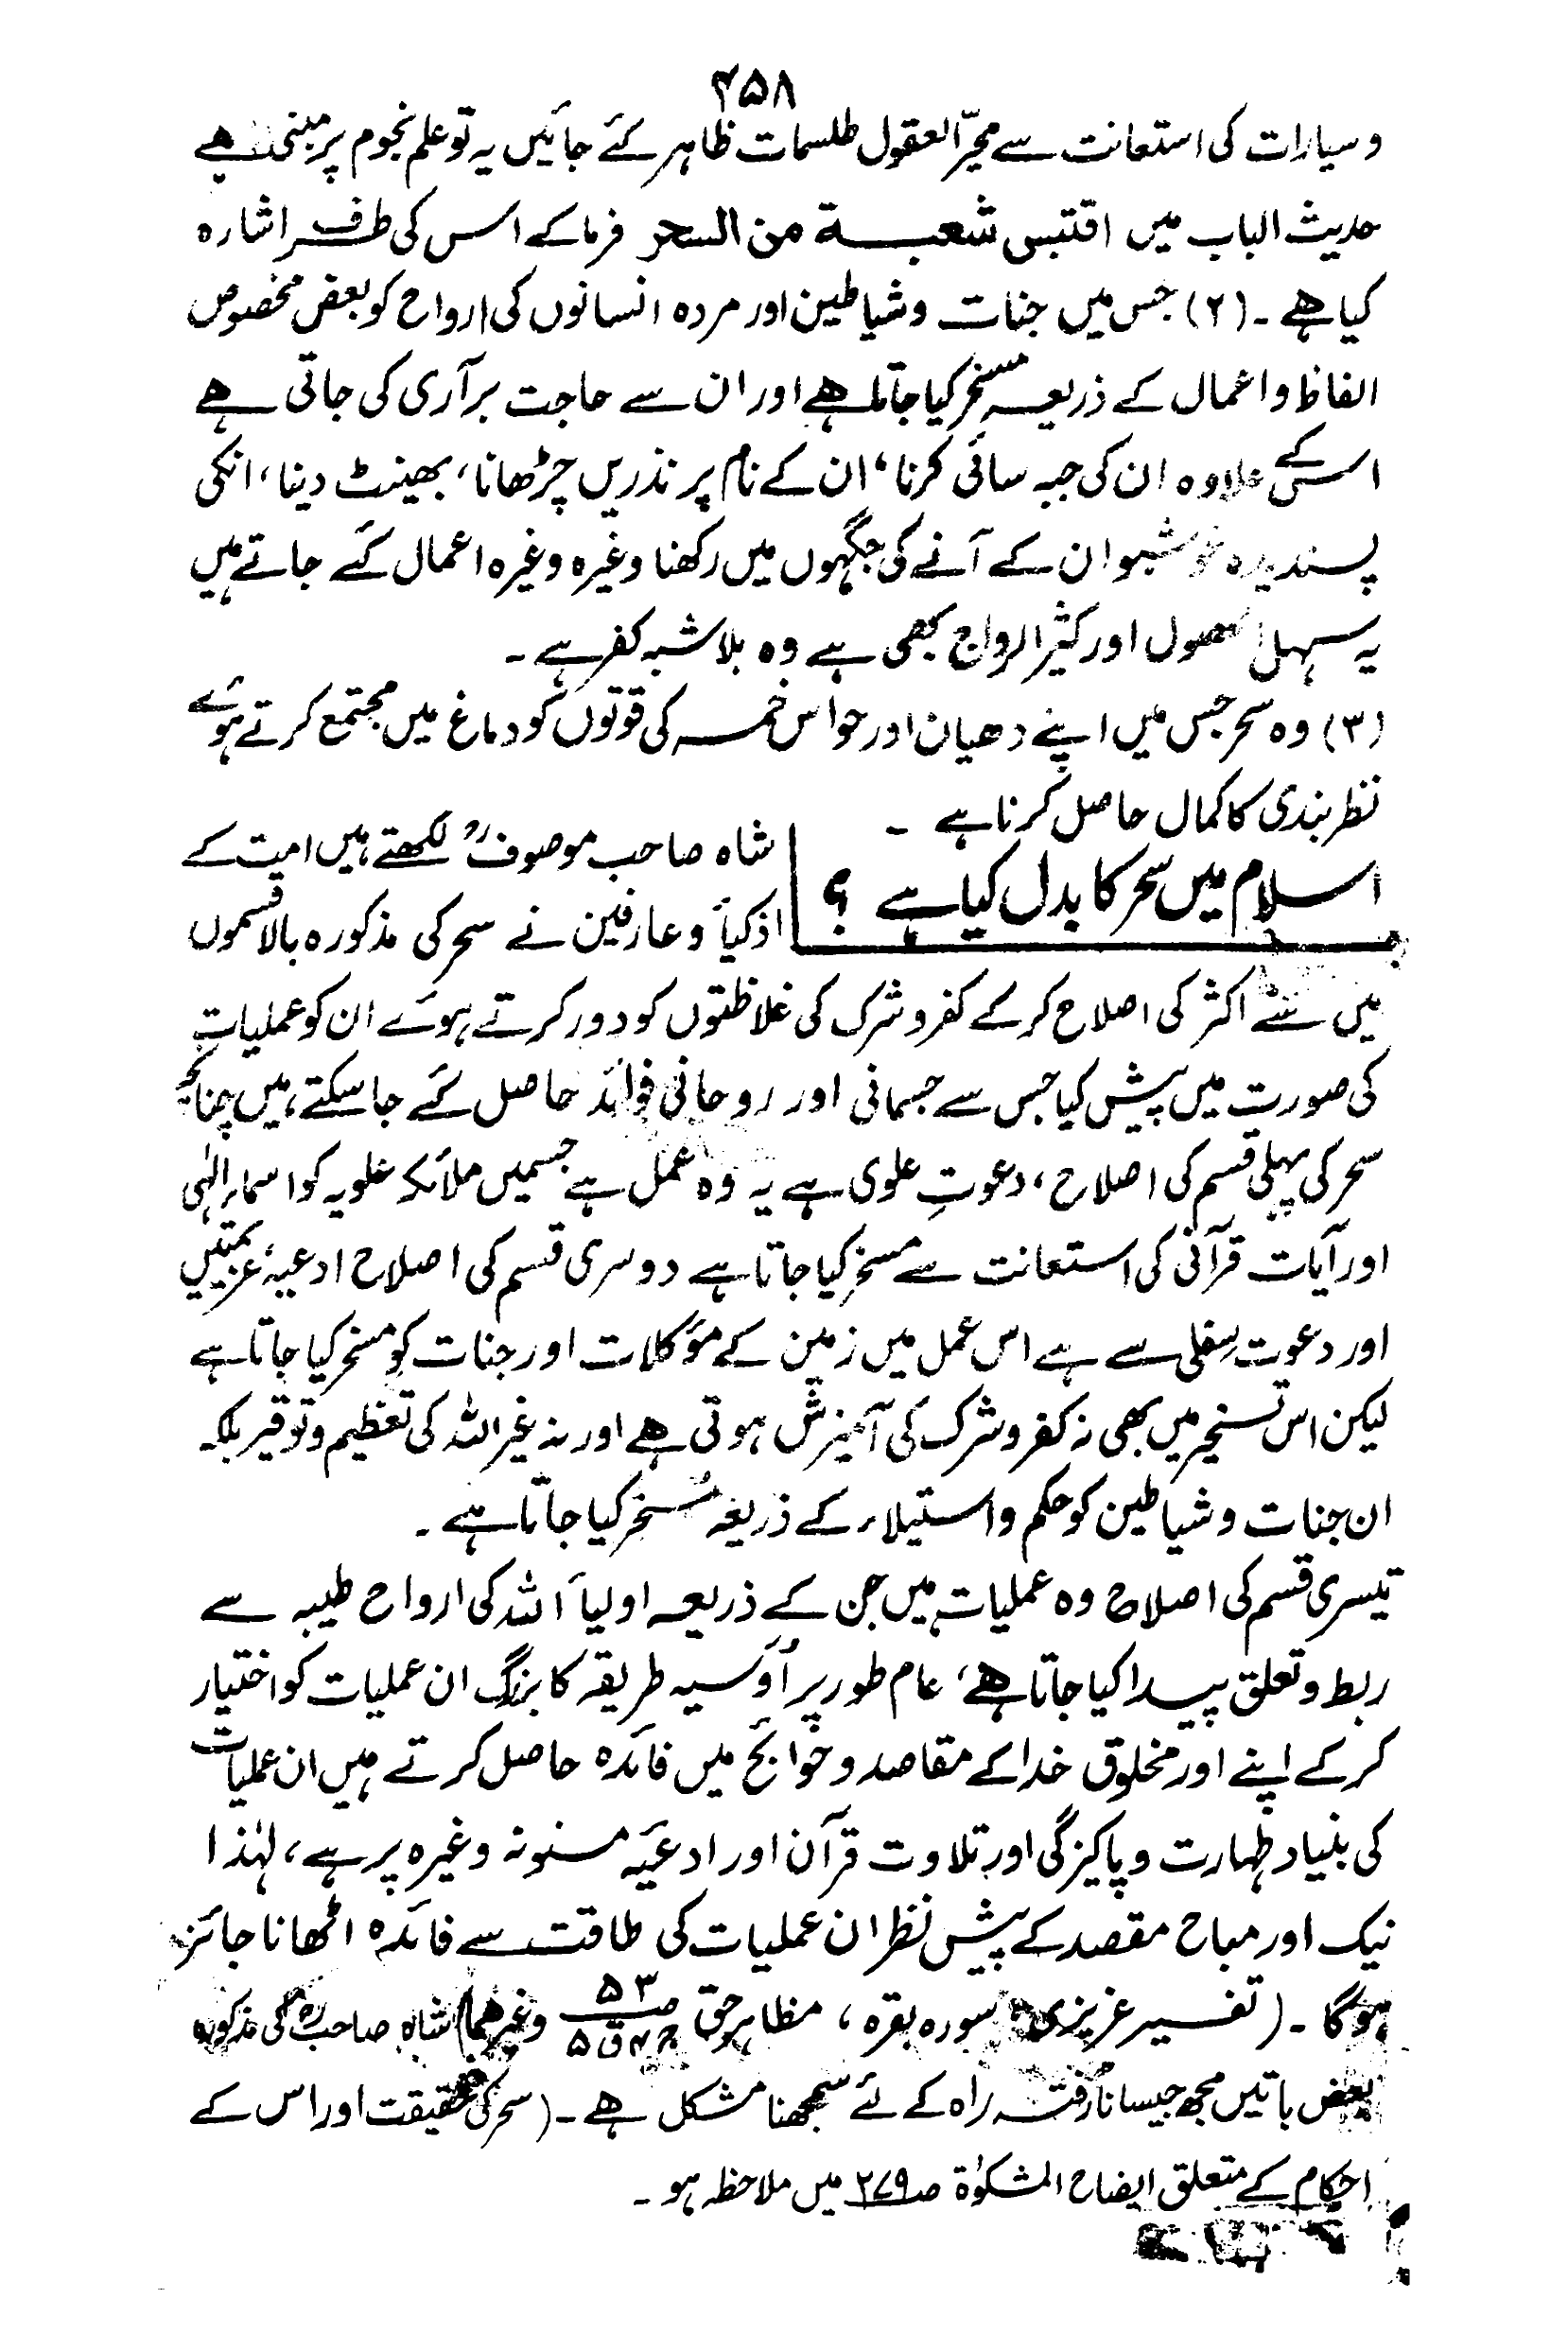 ۴۵۸
و سیارات کی استعانت سے محیّر العقول طلسمات ظاہر کئے جائیں یہ تو علم نجوم پر مبنی ہے
حدیث الباب میں اقتبس شعبة من السحر فرما کے اس کی طرف اشارہ
کیا ہے ۔ (۲) جس میں جنات و شیاطین اور مردہ انسانوں کی ارواح کو بعض مخصوص
الفاظ و اعمال کے ذریعہ مسخر کیا جاتا ہے اور ان سے حاجت برآری کی جاتی ہے
اس کے علاوہ ان کی جبہ سائی کرنا، ان کے نام پر نذریں چڑھانا، بھینٹ دینا، انکی
پسندیدہ خوشبو ان کے آنے کی جگہوں میں رکھنا وغیرہ وغیرہ اعمال کئے جاتے ہیں
یہ سہل الحصول اور کثیر الرواج بھی ہے وہ بلا شبہ کفر ہے ۔
(۳) وہ سحر جس میں اپنے دھیان اور حواس خمسہ کی قوتوں کو دماغ میں مجتمع کرتے ہوئے
نظر بندی کا کمال حاصل کرنا ہے ۔
اسلام میں سحر کا بدل کیا ہے ؟
شاہ صاحب موصوفؒ لکھتے ہیں امت کے
اذکیاء و عارفین نے سحر کی مذکورہ بالا قسموں
میں سے اکثر کی اصلاح کر کے کفر و شرک کی غلاظتوں کو دور کرتے ہوئے ان کو عملیات
کی صورت میں پیش کیا جس سے جسمانی اور روحانی فوائد حاصل کئے جا سکتے ہیں چنانچہ
سحر کی پہلی قسم کی اصلاح، دعوتِ علوی ہے یہ وہ عمل ہے جسمیں ملائکہ علویہ کو اسماء الٰہی
اور آیات قرآنی کی استعانت سے مسخر کیا جاتا ہے دوسری قسم کی اصلاح ادعیۂ عزیمتیں
اور دعوت سفلی سے ہے اس عمل میں زمین کے مؤکلات اور جنات کو مسخر کیا جاتا ہے
لیکن اس تسخیر میں بھی نہ کفر و شرک کی آمیزش ہوتی ہے اور نہ غیر اللہ کی تعظیم و توقیر بلکہ
ان جنات و شیاطین کو حکم و استیلاء کے ذریعہ مُسخر کیا جاتا ہے ۔
تیسری قسم کی اصلاح وہ عملیات ہیں جن کے ذریعہ اولیاء اللہ کی ارواح طیبہ سے
ربط و تعلق پیدا کیا جاتا ہے، عام طور پر اُوَیسیہ طریقہ کا بزرگ ان عملیات کو اختیار
کر کے اپنے اور مخلوق خدا کے مقاصد و حوائج میں فائدہ حاصل کرتے ہیں ان عملیات
کی بنیاد طہارت و پاکیزگی اور تلاوت قرآن اور ادعیہ مسنونہ وغیرہ پر ہے، لہٰذا
نیک اور مباح مقصد کے پیش نظر ان عملیات کی طاقت سے فائدہ اٹھانا جائز
ہوگا ۔ (تفسیر عزیزی سورہ بقرہ، مظاہر حق صـ۵۳ ج۴ ق۵ وغیرھما) شاہ صاحبؒ کی مذکورہ
بعض باتیں مجھ جیسا نارفتہ راہ کے لئے سمجھنا مشکل ہے ۔ (سحر کی حقیقت اور اس کے
احکام کے متعلق ایضاح المشکوٰۃ صـ۲۷۹ میں ملاحظہ ہو ۔